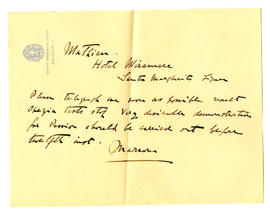 Mathieu.
Hotel Miramare
Santa Margherita Ligure
Please telegraph me soon as possible result
Spezia tests stop Very desirable demonstration
for Mission should be carried out before
twelfth inst.
Marconi